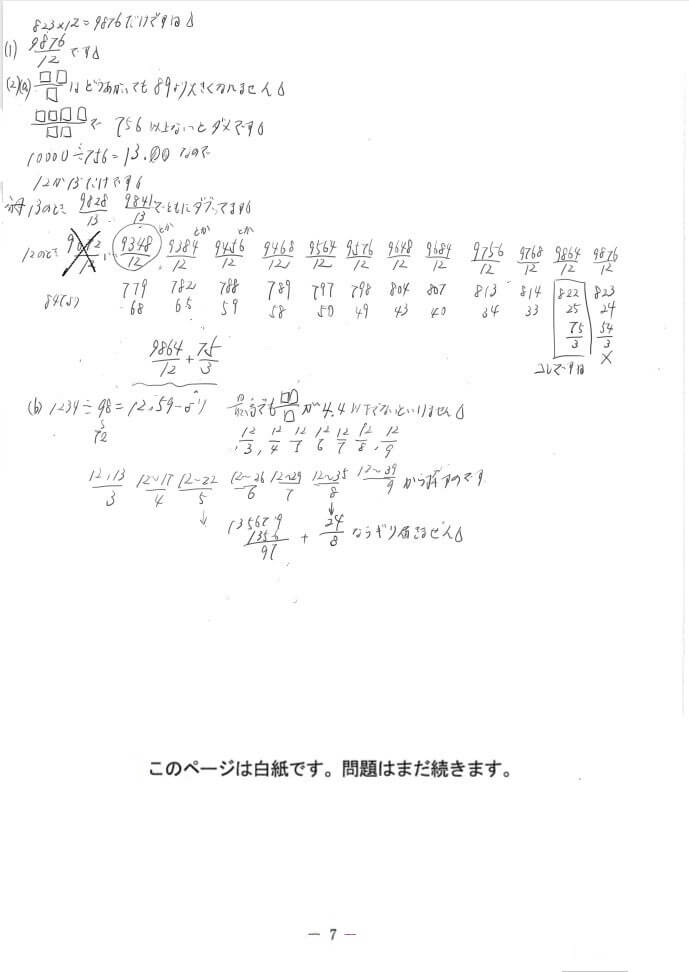 823×12=9876だけですね
(1) 9876/12 です
(2)(a) □□/□ はどうあがいても89より大きくなれません
□□□□/□□ で 756以上ないとダメです
10000÷756=13.00 なので
12か13だけです
分母13のとき 9828/13 9841/13 でともにダブってます
12のとき 9612/12 9348/12 とか 9384/12 とか 9456/12 とか 9468/12 9564/12 9576/12 9648/12 9684/12 9756/12 9768/12 9864/12 9876/12
847より 779 782 788 789 797 798 804 807 813 814 822 823
68 65 59 58 50 49 43 40 34 33 25 24
75/3 54/3
コレですね ×
9864/12 + 75/3
(b) 1234÷98=12.59… より 最高でも □□/□ が 4.4 以下でないといけません
12/3, 12/4 12/5 12/6 12/7 12/8, 12/9
12,13/3 12~17/4 12~22/5 12~26/6 12~29/7 12~35/8 12~39/9 から探すのです
135679
1356/97 + 24/8 ならギリ届きません
このページは白紙です。問題はまだ続きます。
— 7 —